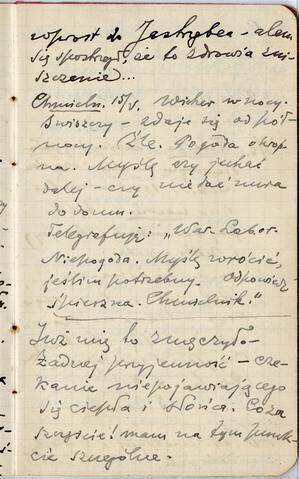 wprost do Jastrzębca – alem
się spostrzegł, że to zdrowia zni-
szczenie...
Chmieln. 15/V. Wicher w nocy.
Świszczy – zdaje się od pół-
nocy. Źle. Pogoda okrop-
na. Myślę czy jechać
dalej – czy nie dać nura
do domu.
Telegrafuję: „War. Labor.
Niepogoda. Myślę wrócić,
jeślim potrzebny. Odpowiedz
śpieszna. Chmielnik."
Już mię to zmęczyło –
Żadnej przyjemność – cze-
kanie niepojawiającego
się ciepła i słońca. Cóż za
szczęście! mam na tym punk-
cie szczególne.